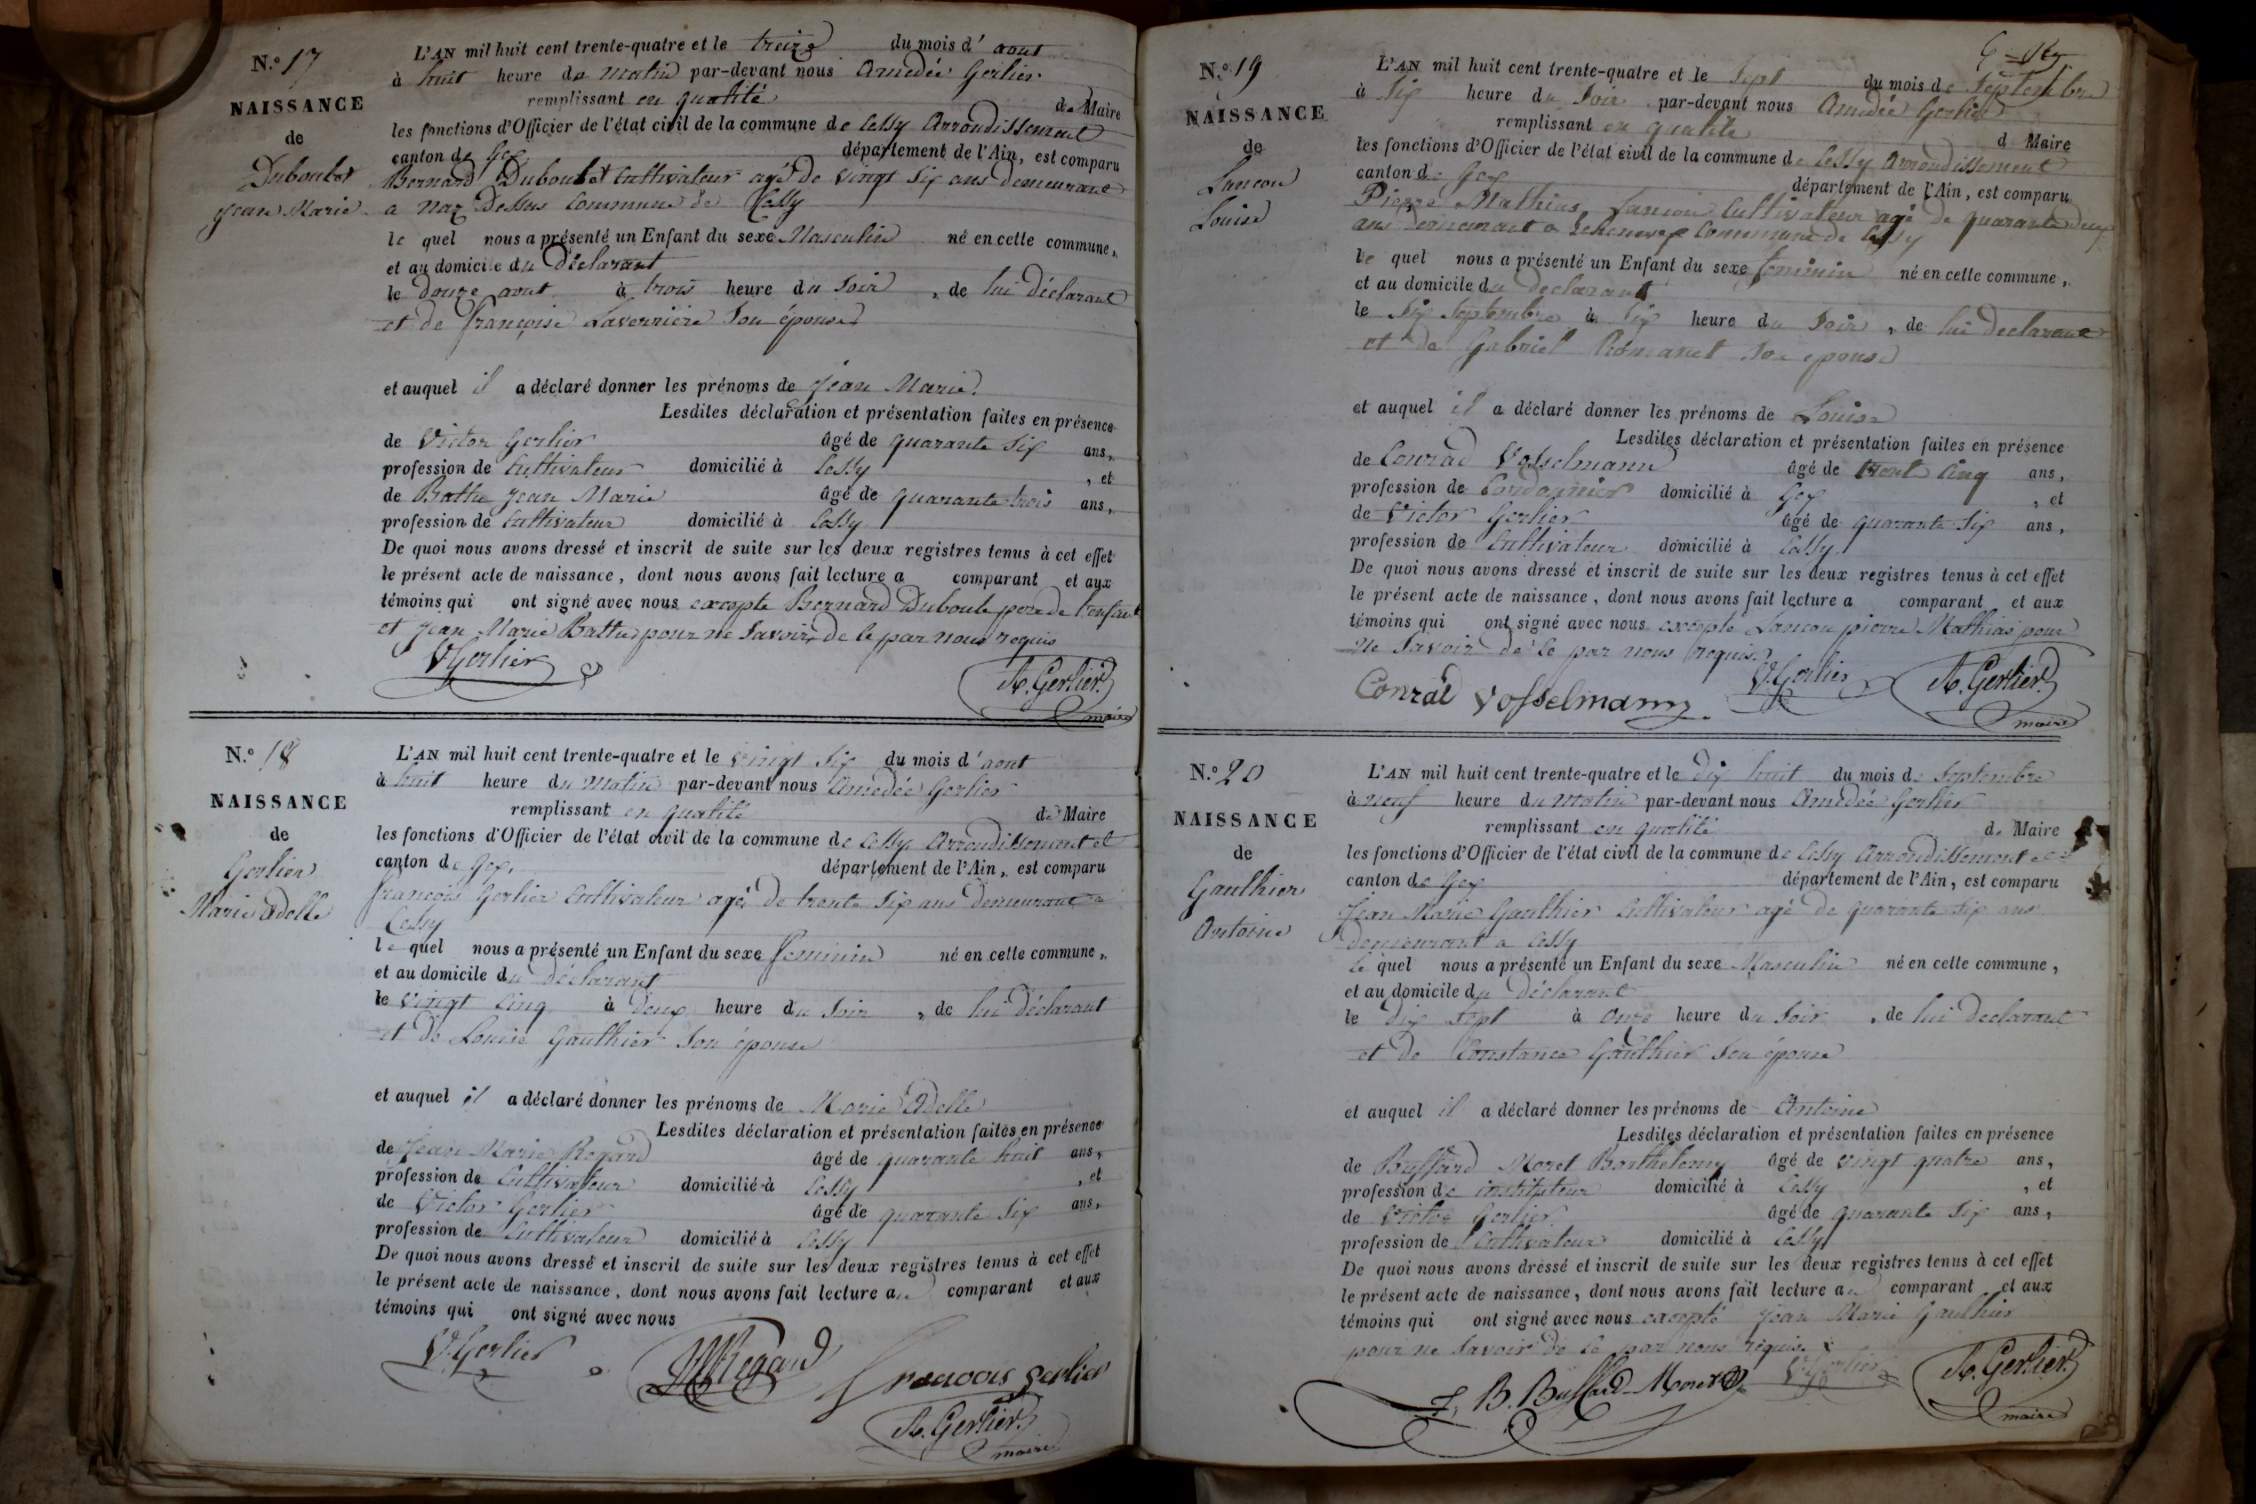 N.º 17
NAISSANCE
de
Duboulet
Jean Marie
L'AN mil huit cent trente-quatre et le treize du mois d' aout
à huit heure du matin par-devant nous Amedée Gerlier
remplissant en qualité de Maire
les fonctions d'Officier de l'état civil de la commune de Cessy Arrondissement
canton de Gex département de l'Ain, est comparu
Bernard Duboulet Cultivateur agé de vingt six ans demeurant
a Naz Dessus Commune de Cessy
le quel nous a présenté un Enfant du sexe Masculin né en cette commune,
et au domicile du Déclarant
le douze aout à trois heure du Soir, de lui déclarant
et de françoise Laverniere Son épouse
et auquel il a déclaré donner les prénoms de Jean Marie.
Lesdites déclaration et présentation faites en présence
de Victor Gerlier âgé de quarante Six ans,
profession de Cultivateur domicilié à Cessy, et
de Bathu Jean Marie âgé de quarante trois ans,
profession de Cultivateur domicilié à Cessy
De quoi nous avons dressé et inscrit de suite sur les deux registres tenus à cet effet
le présent acte de naissance, dont nous avons fait lecture a comparant et aux
témoins qui ont signé avec nous excepte Bernard Duboule pere de l'enfant
et Jean Marie Bathu pour ne Savoir, de le par nous requis
V Gerlier
A. Gerlier
maire
N.º 18
NAISSANCE
de
Gerlier
Marie Adelle
L'AN mil huit cent trente-quatre et le vingt Six du mois d' aout
à huit heure du Matin par-devant nous Amedée Gerlier
remplissant en qualité de Maire
les fonctions d'Officier de l'état civil de la commune de Cessy Arrondissement et
canton de Gex, département de l'Ain, est comparu
françois Gerlier Cultivateur agé de trente Six ans Demeurant a
Cessy
le quel nous a présenté un Enfant du sexe feminin né en cette commune,
et au domicile du déclarant
le vingt Cinq à Deux heure du Soir, de lui déclarant
et de Louise Gauthier Son épouse
et auquel il a déclaré donner les prénoms de Marie Adelle
Lesdites déclaration et présentation faites en présence
de Jean Marie Regard âgé de quarante huit ans,
profession de Cultivateur domicilié à Cessy, et
de Victor Gerlier âgé de quarante Six ans,
profession de Cultivateur domicilié à Cessy
De quoi nous avons dressé et inscrit de suite sur les deux registres tenus à cet effet
le présent acte de naissance, dont nous avons fait lecture au comparant et aux
témoins qui ont signé avec nous
V. Gerlier
JM Regard
francois gerlier
A. Gerlier
maire
N.º 19
NAISSANCE
de
Lancon
Louise
L'AN mil huit cent trente-quatre et le Sept du mois de Septembre
à Six heure du Soir par-devant nous Amedée Gerlier
remplissant en qualité d Maire
les fonctions d'Officier de l'état civil de la commune de Cessy Arrondissement
canton de Gex département de l'Ain, est comparu
Pierre Mathias Lancon Cultivateur agé de quarante deux
ans demeurant a Commune de Cessy
le quel nous a présenté un Enfant du sexe feminin né en cette commune,
et au domicile du declarant
le Six Septembre à Six heure du Soir, de lui declarant
et de Gabriel Romanet Son epouse
et auquel il a déclaré donner les prénoms de Louise
Lesdites déclaration et présentation faites en présence
de Conrad Vosselmann âgé de trent Cinq ans,
profession de Cordonnier domicilié à Gex, et
de Victor Gerlier âgé de quarante Six ans,
profession de Cultivateur domicilié à Cessy
De quoi nous avons dressé et inscrit de suite sur les deux registres tenus à cet effet
le présent acte de naissance, dont nous avons fait lecture a comparant et aux
témoins qui ont signé avec nous excepté Lancon pierre Mathias pour
ne Savoir de le par nous requis
Conrad Vosselmann
V. Gerlier
A. Gerlier
maire
N.º 20
NAISSANCE
de
Gaulthier
Antoine
L'AN mil huit cent trente-quatre et le Dix huit du mois de Septembre
à neuf heure du matin par-devant nous Amedée Gerlier
remplissant en qualité de Maire
les fonctions d'Officier de l'état civil de la commune de Cessy Arrondissement et
canton de Gex département de l'Ain, est comparu
Jean Marie Gaulthier Cultivateur agé De quarante Six ans
demeurant a Cessy
le quel nous a présenté un Enfant du sexe Masculin né en cette commune,
et au domicile du déclarant
le Dix Sept à Onze heure du Soir, de lui declarant
et de Constance Gaulthier Son épouse
et auquel il a déclaré donner les prénoms de Antoine
Lesdites déclaration et présentation faites en présence
de Buffard Moret Barthelemy âgé de vingt quatre ans,
profession de instituteur domicilié à Cessy, et
de Victor Gerlier âgé de quarante Six ans,
profession de Cultivateur domicilié à Cessy
De quoi nous avons dressé et inscrit de suite sur les deux registres tenus à cet effet
le présent acte de naissance, dont nous avons fait lecture au comparant et aux
témoins qui ont signé avec nous excepté Jean Marie Gaulthier
pour ne Savoir de le par nous requis
B. Buffard-Moret
V Gerlier
A. Gerlier
maire